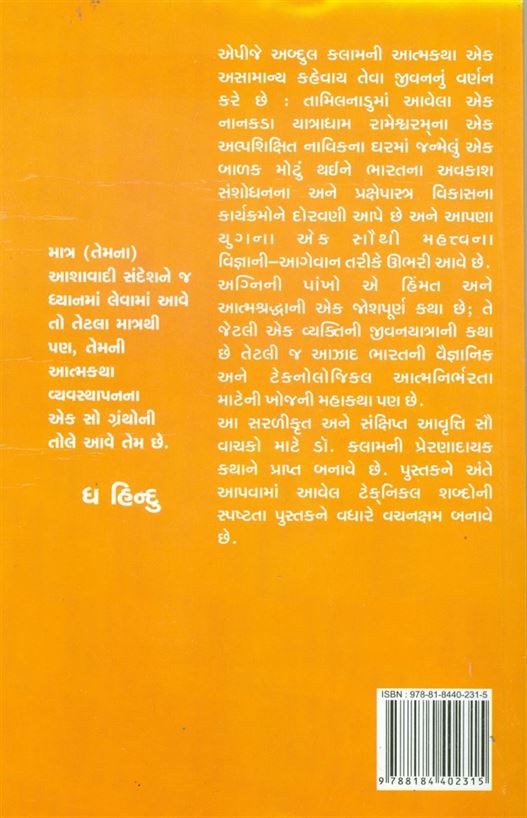 એપીજે અબ્દુલ કલામની આત્મકથા એક
અસામાન્ય કહેવાય તેવા જીવનનું વર્ણન
કરે છે : તામિલનાડુમાં આવેલા એક
નાનકડા યાત્રાધામ રામેશ્વરમ્‌ના એક
અલ્પશિક્ષિત નાવિકના ઘરમાં જન્મેલું એક
બાળક મોટું થઈને ભારતના અવકાશ
સંશોધનના અને પ્રક્ષેપાસ્ત્ર વિકાસના
કાર્યક્રમોને દોરવણી આપે છે અને આપણા
યુગના એક સૌથી મહત્ત્વના
વિજ્ઞાની–આગેવાન તરીકે ઊભરી આવે છે.
અગ્નિની પાંખો એ હિંમત અને
આત્મશ્રદ્ધાની એક જોશપૂર્ણ કથા છે; તે
જેટલી એક વ્યક્તિની જીવનયાત્રાની કથા
છે તેટલી જ આઝાદ ભારતની વૈજ્ઞાનિક
અને ટેકનોલોજિકલ આત્મનિર્ભરતા
માટેની ખોજની મહાકથા પણ છે.
આ સરળીકૃત અને સંક્ષિપ્ત આવૃત્તિ સૌ
વાચકો માટે ડૉ. કલામની પ્રેરણાદાયક
કથાને પ્રાપ્ત બનાવે છે. પુસ્તકને અંતે
આપવામાં આવેલ ટેક્‌નિકલ શબ્દોની
સ્પષ્ટતા પુસ્તકને વધારે વચનક્ષમ બનાવે
છે.
માત્ર (તેમના)
આશાવાદી સંદેશને જ
ધ્યાનમાં લેવામાં આવે
તો તેટલા માત્રથી
પણ, તેમની
આત્મકથા
વ્યવસ્થાપનના
એક સો ગ્રંથોની
તોલે આવે તેમ છે.
ધ હિન્દુ
ISBN : 978-81-8440-231-5
9 788184 402315